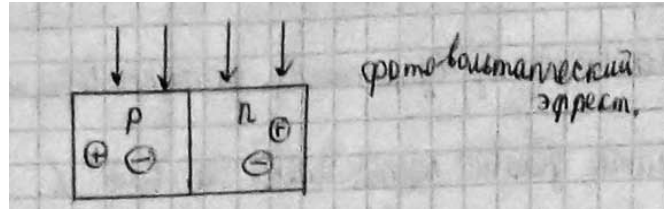 фотовольтаический
эффект.
p n
⊕ ⊖ ⊖ ⊕